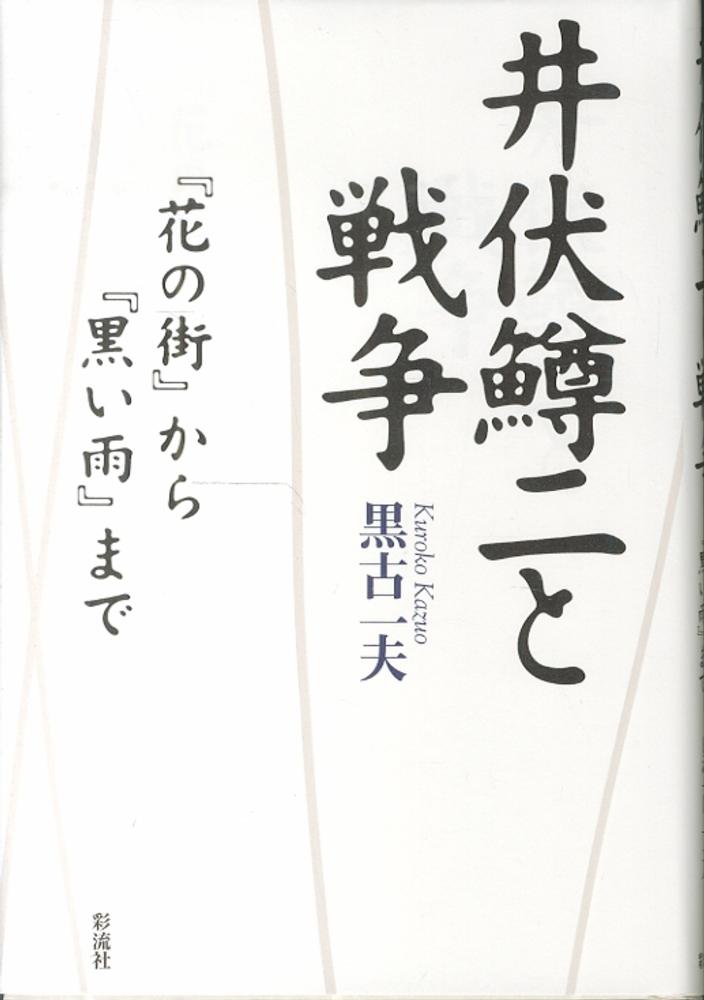 井伏鱒二と
戦争
Kuroko Kazuo
黒古一夫
『花の街』から
『黒い雨』まで
彩流社